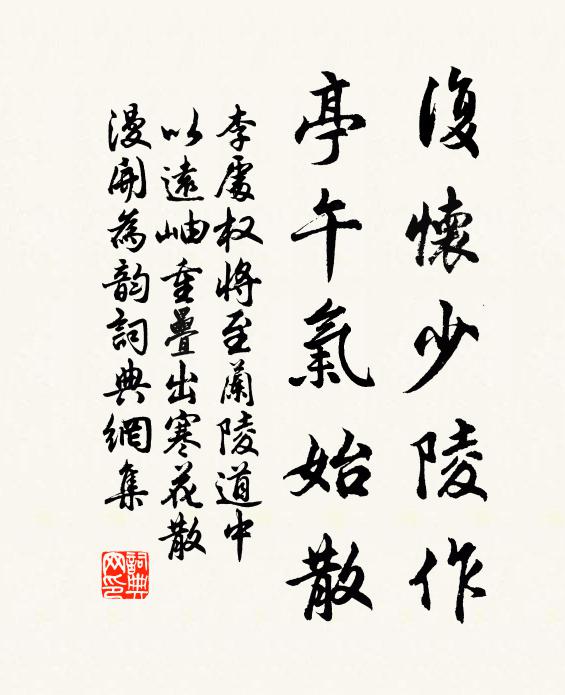 復懷少陵作
亭午氣始散
李處权將至蘭陵道中
以遠岫重疊出寒花散
漫開為韵詞典網集
詞典
网印